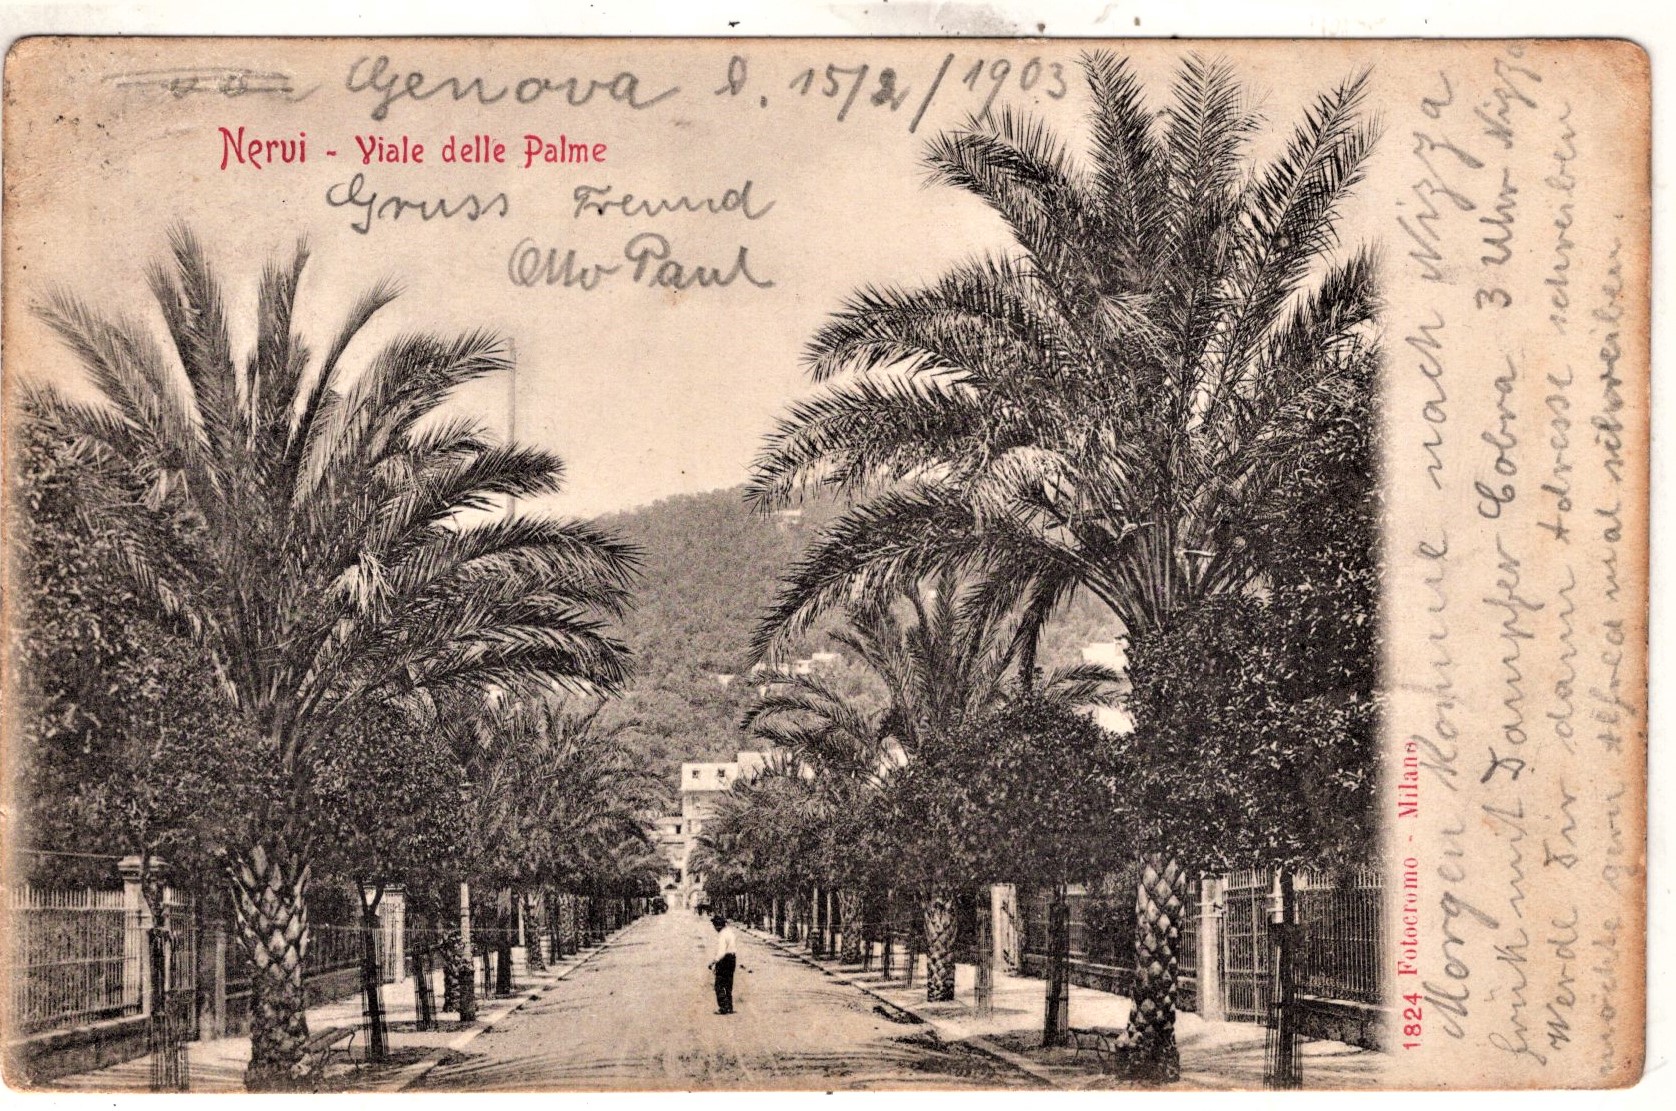 Genova d. 15/2/1903
Nervi - Viale delle Palme
Gruss Freund
Otto Paul
1824 Fotocromo - Milano
Morgen nach Nizza
früh mit Dampfer Cobra 3 Uhr Nizza
Werde Dir dann Adresse schreiben
möchte gern Alfred mal schreiben.